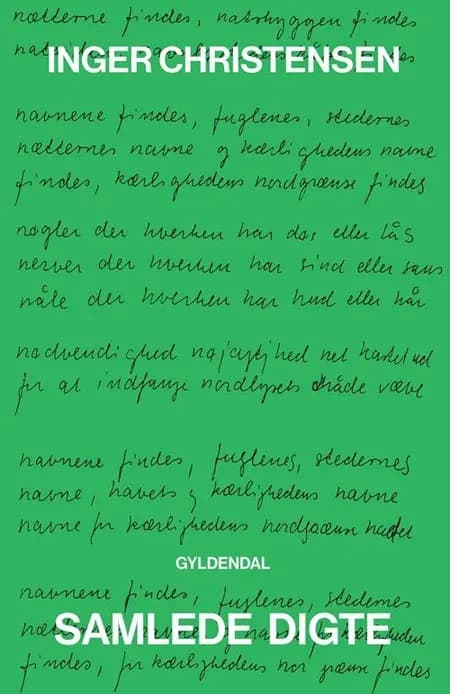 nætterne findes, natskyggen findes
INGER CHRISTENSEN
navnene findes, fuglenes, stedernes
nætternes navne og kærlighedens navne
findes, kærlighedens nordgrænse findes
nøgler der hverken har dør eller lås
nerver der hverken har sind eller sans
nåle der hverken har hud eller hår
nødvendighed nøjagtighed net kastet ud
for at indfange nordlysets våde væv
navnene findes, fuglenes, stedernes
navne, havets og kærlighedens navne
navne for kærlighedens nordgrænse
GYLLDENDAL
navnene findes, fuglenes, stedernes
SAMLEDE DIGTE
findes, for kærlighedens nordgrænse findes